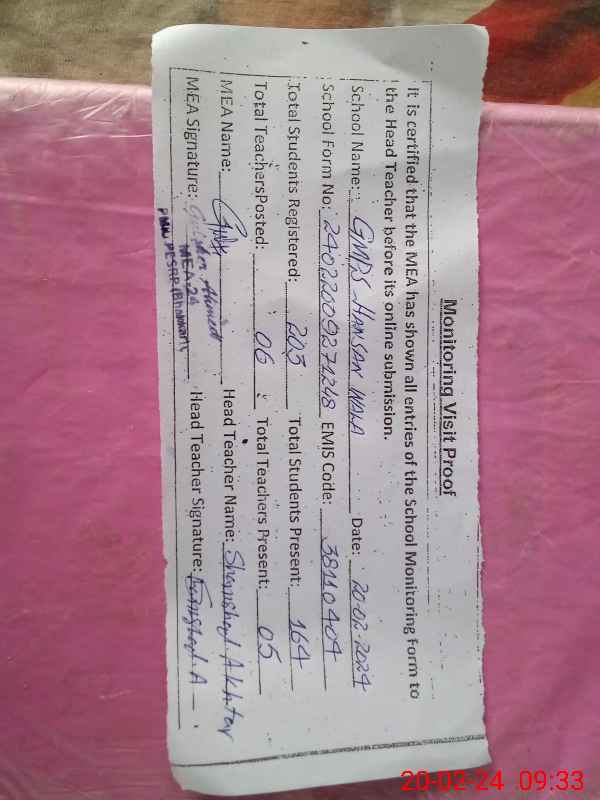 Monitoring Visit Proof
It is certified that the MEA has shown all entries of the School Monitoring Form to
the Head Teacher before its online submission.
School Name: GMPS HANSAN WALA Date: 20-02-2024
School Form No: 24022009271248 EMIS Code: 38110404
Total Students Registered: 203 Total Students Present: 164
Total TeachersPosted: 06 Total Teachers Present: 05
MEA Name: Head Teacher Name: Shamshad Akhtar
MEA Signature: Ahmed Head Teacher Signature:
MEA 24
20-02-24 09:33